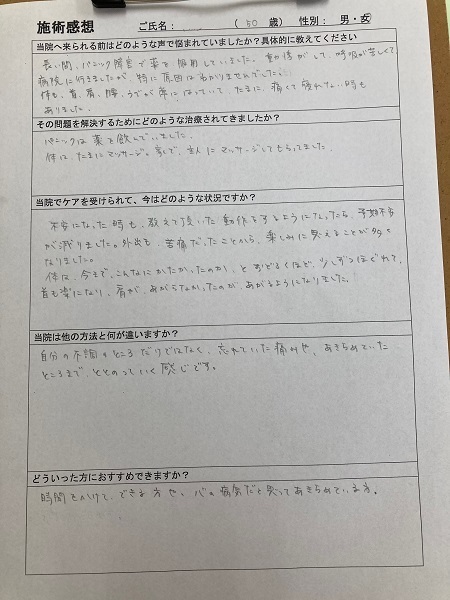 施術感想 ご氏名: ( 50 歳) 性別: 男・女
当院へ来られる前はどのような声で悩まれていましたか?具体的に教えてください
長い間、パニック障害で薬を服用していました。動悸がして、呼吸が苦しくて
病院に行きましたが、特に原因はわかりませんでした。
体も、首、肩、腰、うでが常にはっていて、たまに、痛くて寝れない時も
ありました。
その問題を解決するためにどのような治療されてきましたか?
パニックは薬を飲んでいました。
体は、たまにマッサージ。家で、主人にマッサージしてもらってました。
当院でケアを受けられて、今はどのような状況ですか?
不安になった時も、教えて頂いた動作をするようになったら、予期不安
が減りました。外出も、苦痛だったことから、楽しみに思えることが多く
なりました。
体は、今まで、こんなにかたかったのか、とおどろくほど、少しずつほぐれて、
首も楽になり、肩が、あがらなかったのが、あがるようになりました。
当院は他の方法と何が違いますか?
自分の不調のところだけではなく、忘れていた痛みや、あきらめていた
ところまで、ととのっていく感じです。
どういった方におすすめできますか?
時間をかけて、できる方や、心の病気だと思ってあきらめている方。